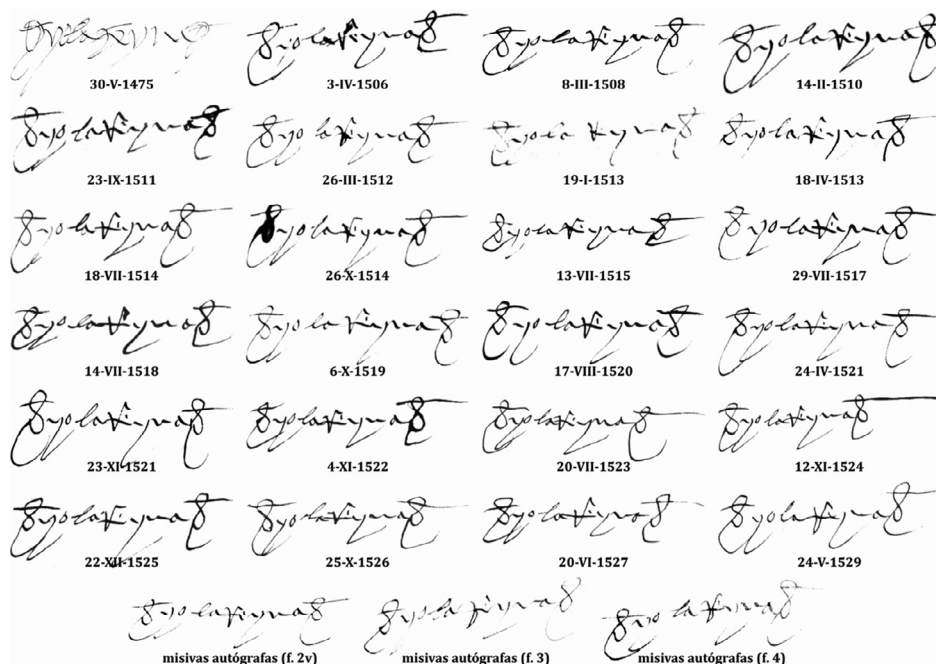 yo la Reyna yo la Reyna yo la Reyna yo la Reyna
30-V-1475 3-IV-1506 8-III-1508 14-II-1510
yo la Reyna yo la Reyna yo la Reyna yo la Reyna
23-IX-1511 26-III-1512 19-I-1513 18-IV-1513
yo la Reyna yo la Reyna yo la Reyna yo la Reyna
18-VII-1514 26-X-1514 13-VII-1515 29-VII-1517
yo la Reyna yo la Reyna yo la Reyna yo la Reyna
14-VII-1518 6-X-1519 17-VIII-1520 24-IV-1521
yo la Reyna yo la Reyna yo la Reyna yo la Reyna
23-XI-1521 4-XI-1522 20-VII-1523 12-XI-1524
yo la Reyna yo la Reyna yo la Reyna yo la Reyna
22-XII-1525 25-X-1526 20-VI-1527 24-V-1529
yo la Reyna yo la Reyna yo la Reyna
misivas autógrafas (f. 2v) misivas autógrafas (f. 3) misivas autógrafas (f. 4)